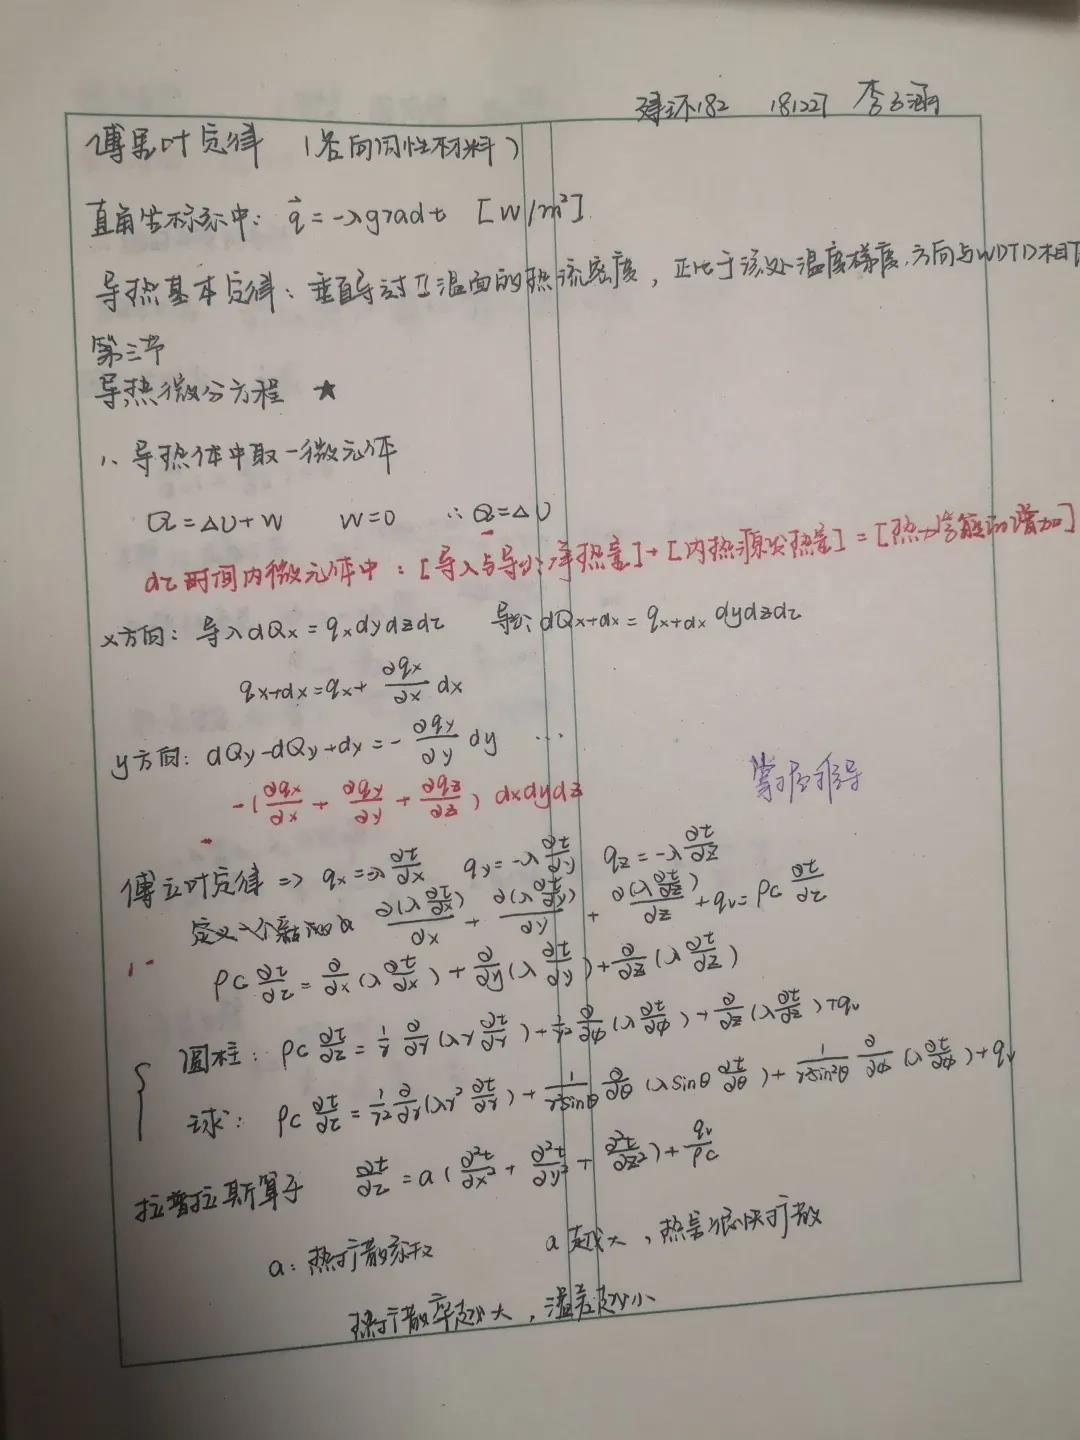 建环182 181227 李子涵
傅里叶定律 (各向同性材料)
直角坐标系中: q⃗ = -λgradt [W/m²]
导热基本定律: 垂直导过等温面的热流密度, 正比于该处温度梯度, 方向与
第三节
导热微分方程 ★
1、导热体中取一微元体
Q = ΔU + W W = 0 ∴ Q = ΔU
dτ时间内微元体中: [导入与导出净热量] + [内热源发热量] = [热力学能的增加]
x方向: 导入 dQx = qx dydzdτ 导出: dQx+dx = qx+dx dydzdτ
qx+dx = qx + ∂qx/∂x dx
y方向: dQy - dQy+dy = - ∂qy/∂y dy ...
掌握推导
-(∂qx/∂x + ∂qy/∂y + ∂qz/∂z) dxdydz
傅立叶定律 => qx = -λ ∂t/∂x qy = -λ ∂t/∂y qz = -λ ∂t/∂z
∂(λ ∂t/∂x)/∂x + ∂(λ ∂t/∂y)/∂y + ∂(λ ∂t/∂z)/∂z + qv = ρc ∂t/∂τ
ρc ∂t/∂τ = ∂/∂x (λ ∂t/∂x) + ∂/∂y (λ ∂t/∂y) + ∂/∂z (λ ∂t/∂z)
圆柱: ρc ∂t/∂τ = 1/r ∂/∂r (λr ∂t/∂r) + 1/r² ∂/∂φ (λ ∂t/∂φ) + ∂/∂z (λ ∂t/∂z) + qv
球: ρc ∂t/∂τ = 1/r² ∂/∂r (λr² ∂t/∂r) + 1/r²sinθ ∂/∂θ (λsinθ ∂t/∂θ) + 1/r²sin²θ ∂/∂φ (λ ∂t/∂φ) + qv
拉普拉斯算子 ∂t/∂τ = a (∂²t/∂x² + ∂²t/∂y² + ∂²t/∂z²) + qv/ρc
a: 热扩散系数 a越大, 热量很快扩散
热扩散率越大, 温差越小